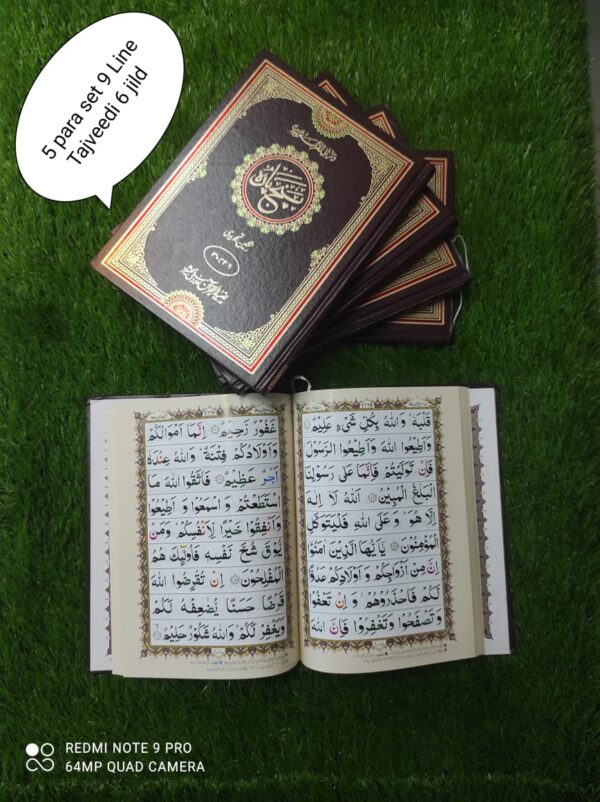 5 para set 9 Line
Tajveedi 6 jild
قَلْبَهٗ ؕ وَاللّٰهُ بِكُلِّ شَیْءٍ عَلِیْمٌ
وَاَطِیْعُوا اللّٰهَ وَاَطِیْعُوا الرَّسُوْلَ ۚ
فَاِنْ تَوَلَّیْتُمْ فَاِنَّمَا عَلٰی رَسُوْلِنَا
الْبَلٰغُ الْمُبِیْنُ اَللّٰهُ لَاۤ اِلٰهَ
اِلَّا هُوَ ؕ وَعَلَی اللّٰهِ فَلْیَتَوَكَّلِ
الْمُؤْمِنُوْنَ یٰۤاَیُّهَا الَّذِیْنَ اٰمَنُوْۤا
اِنَّ مِنْ اَزْوَاجِكُمْ وَاَوْلَادِكُمْ عَدُوًّا
لَّكُمْ فَاحْذَرُوْهُمْ ۚ وَاِنْ تَعْفُوْا
وَتَصْفَحُوْا وَتَغْفِرُوْا فَاِنَّ اللّٰهَ
غَفُوْرٌ رَّحِیْمٌ اِنَّمَاۤ اَمْوَالُكُمْ
وَاَوْلَادُكُمْ فِتْنَةٌ ؕ وَاللّٰهُ عِنْدَهٗۤ
اَجْرٌ عَظِیْمٌ فَاتَّقُوا اللّٰهَ مَا
اسْتَطَعْتُمْ وَاسْمَعُوْا وَاَطِیْعُوْا
وَاَنْفِقُوْا خَیْرًا لِّاَنْفُسِكُمْ ؕ وَمَنْ
یُّوْقَ شُحَّ نَفْسِهٖ فَاُولٰٓىِٕكَ هُمُ
الْمُفْلِحُوْنَ اِنْ تُقْرِضُوا اللّٰهَ
قَرْضًا حَسَنًا یُّضٰعِفْهُ لَكُمْ
وَیَغْفِرْ لَكُمْ ؕ وَاللّٰهُ شَكُوْرٌ حَلِیْمٌ
REDMI NOTE 9 PRO
64MP QUAD CAMERA